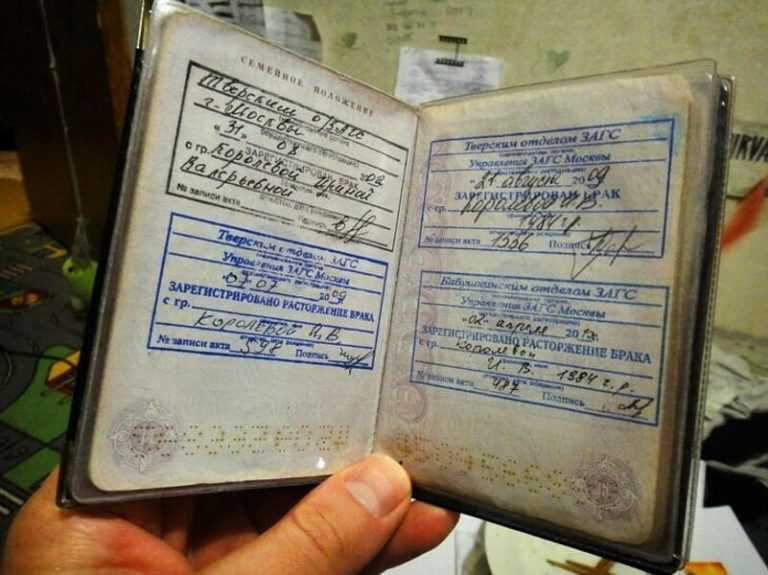 СЕМЕЙНОЕ ПОЛОЖЕНИЕ
Тверским ОЗАГС
г. Москвы
"31" 08 2003
ЗАРЕГИСТРИРОВАН БРАК
с гр. Королевой Ириной
Валерьевной
№ записи акта Подпись
Тверским отделом ЗАГС
Управления ЗАГС Москвы
07 2009
ЗАРЕГИСТРИРОВАНО РАСТОРЖЕНИЕ БРАКА
с гр. Королевой И.В.
№ записи акта 398 Подпись
Тверским отделом ЗАГС
Управления ЗАГС Москвы
"21" августа 2009
ЗАРЕГИСТРИРОВАН БРАК
с гр. И.В.
1984 г.р.
№ записи акта 1556 Подпись
Бабушкинским отделом ЗАГС
Управления ЗАГС Москвы
"02" апреля
ЗАРЕГИСТРИРОВАНО РАСТОРЖЕНИЕ БРАКА
с гр. Королевой
И. В. 1984 г.р.
№ записи акта 487 Подпись